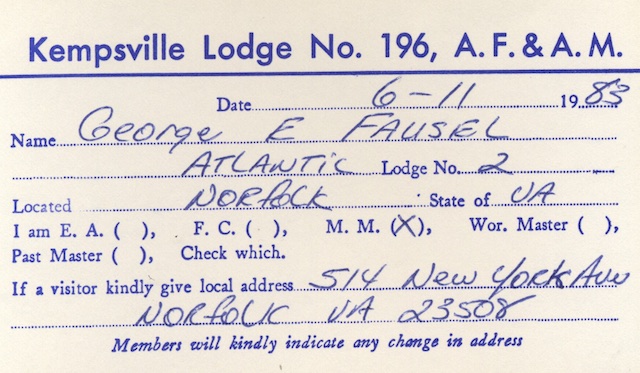 Kempsville Lodge No. 196, A. F. & A. M.
Date 6-11 1983
Name George E FAUSEL
ATLANTIC Lodge No. 2
Located NORFOLK State of VA
I am E. A. ( ), F. C. ( ), M. M. (X), Wor. Master ( ),
Past Master ( ), Check which.
If a visitor kindly give local address 514 New York Ave
NORFOLK VA 23508
Members will kindly indicate any change in address